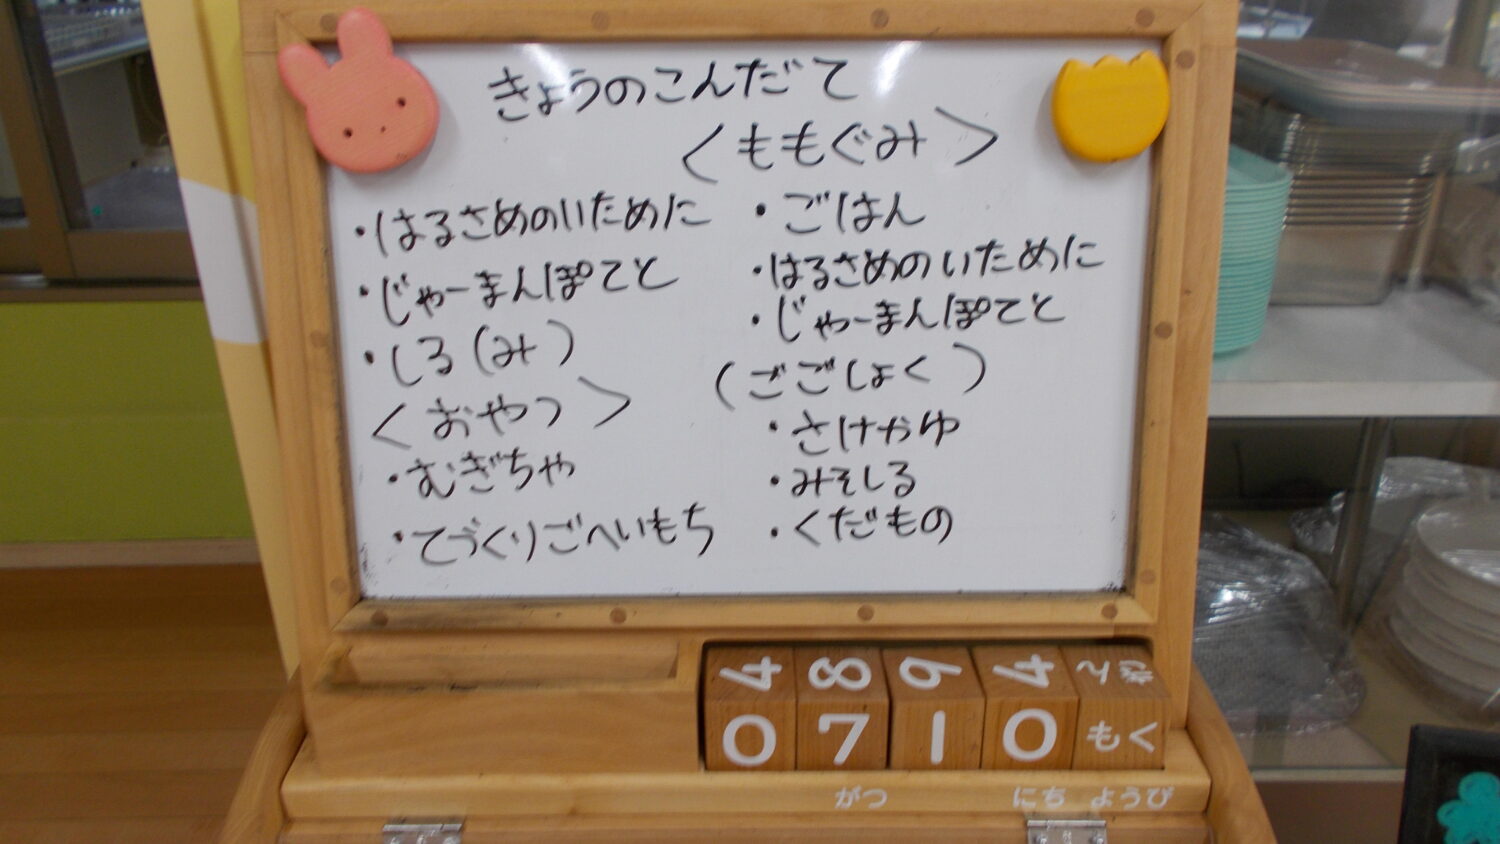 きょうのこんだて
・はるさめのいために
・じゃーまんぽてと
・しる(み)
<おやつ>
・むぎちゃ
・てづくりごへいもち
<ももぐみ>
・ごはん
・はるさめのいために
・じゃーまんぽてと
(ごごしょく)
・さけかゆ
・みそしる
・くだもの
4 8 9 4
0 7 1 0 もく
がつ にち ようび